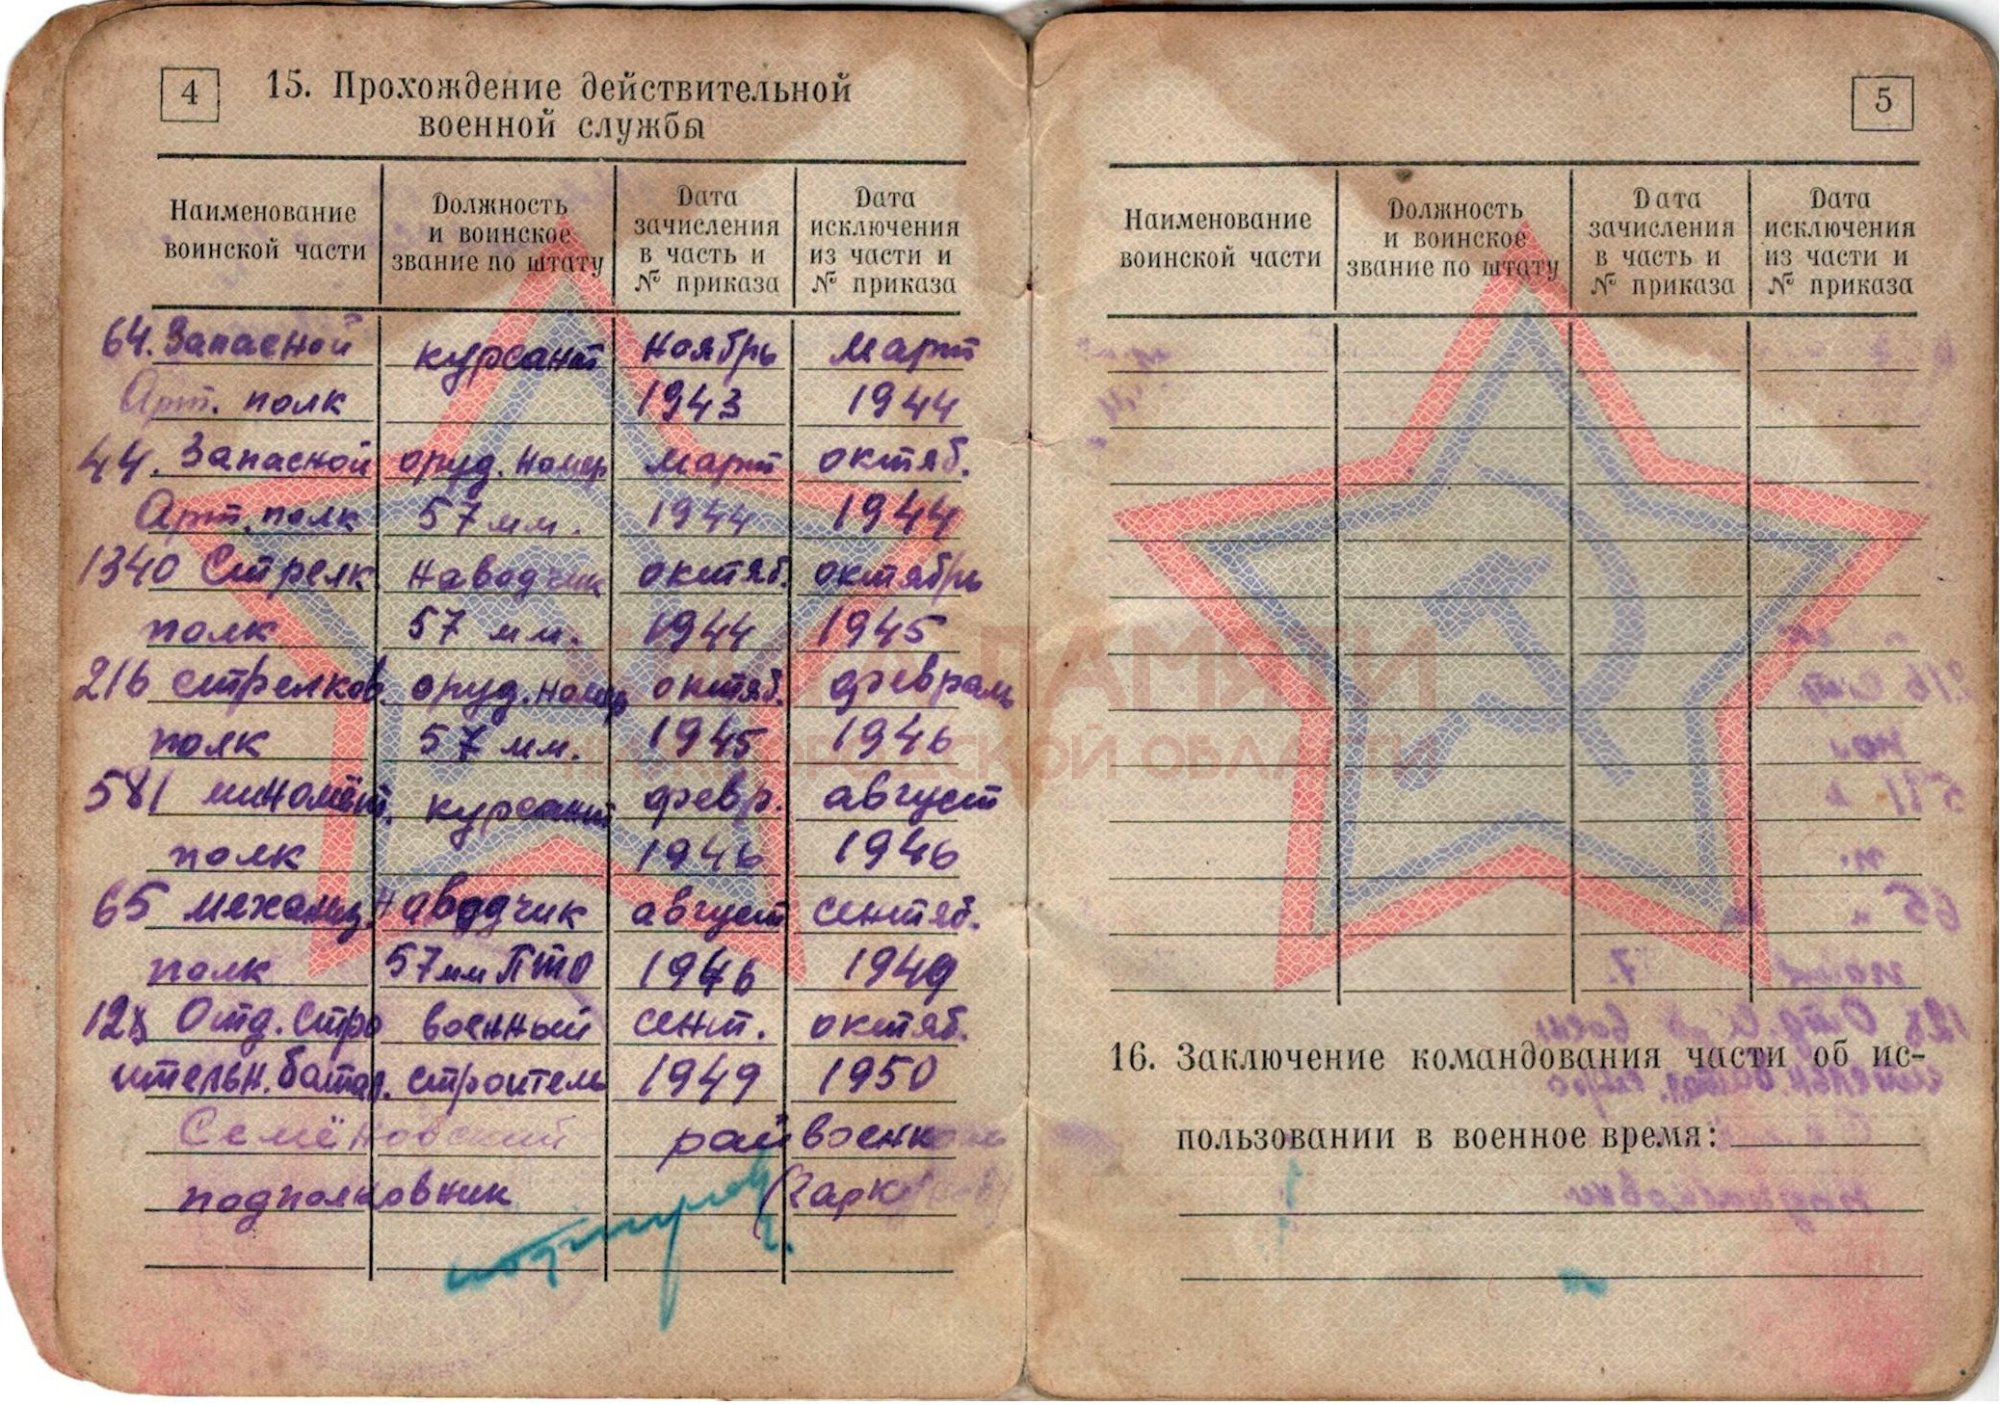 4
15. Прохождение действительной
военной службы
Наименование воинской части
Должность и воинское звание по штату
Дата зачисления в часть и № приказа
Дата исключения из части и № приказа
64. Запасной курсант ноябрь март
Арт. полк 1943 1944
44. Запасной оруд. номер март октяб.
Арт. полк 57 мм. 1944 1944
1340 Стрелк. наводчик октяб. октябрь
полк 57 мм. 1944 1945
216 стрелков. оруд. номер октяб. февраль
полк 57 мм. 1945 1946
581 миномёт. курсант февр. август
полк 1946 1946
65 механиз. наводчик август сентяб.
полк 57 мм ПТО 1946 1949
128 Отд. Стро военный сент. октяб.
ительн. батал. строитель 1949 1950
Семёновский райвоенком
подполковник
5
Наименование воинской части
Должность и воинское звание по штату
Дата зачисления в часть и № приказа
Дата исключения из части и № приказа
16. Заключение командования части об ис-
пользовании в военное время:
КНИГА ПАМЯТИ
НИЖЕГОРОДСКОЙ ОБЛАСТИ